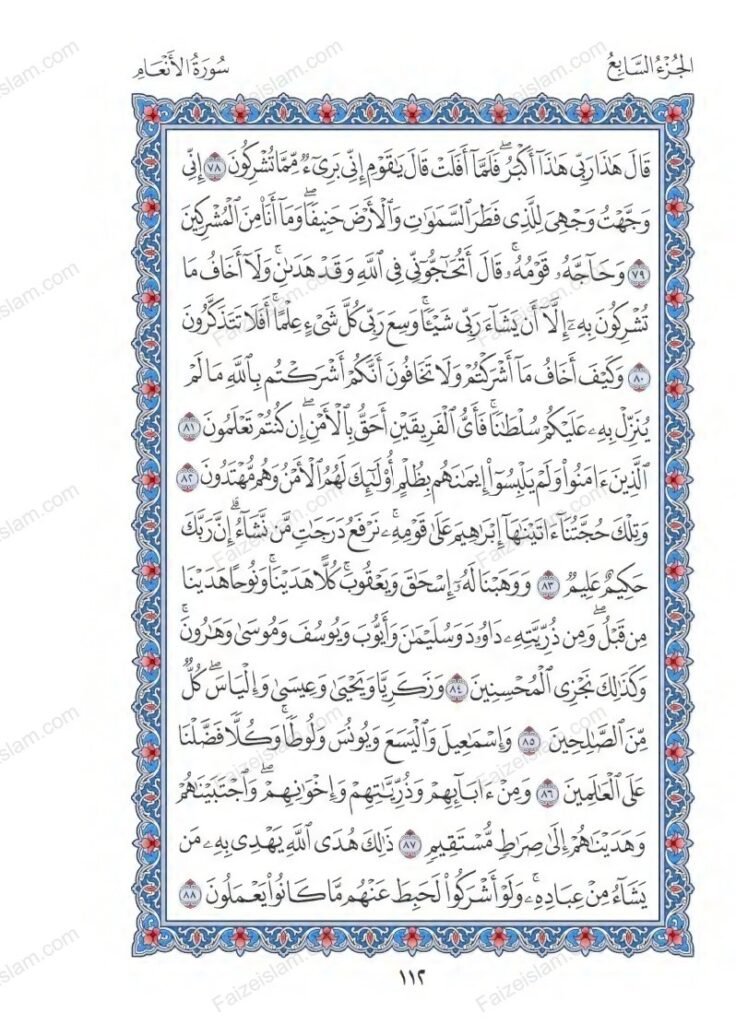 الجُزْءُ السَّابِعُ
سُورَةُ الأَنْعَامِ
قَالَ هَٰذَا رَبِّى هَٰذَآ أَكْبَرُۖ فَلَمَّآ أَفَلَتْ قَالَ يَٰقَوْمِ إِنِّى بَرِىٓءٌ مِّمَّا تُشْرِكُونَ ٧٨ إِنِّى
وَجَّهْتُ وَجْهِىَ لِلَّذِى فَطَرَ ٱلسَّمَٰوَٰتِ وَٱلْأَرْضَ حَنِيفًاۖ وَمَآ أَنَا۠ مِنَ ٱلْمُشْرِكِينَ
٧٩ وَحَآجَّهُۥ قَوْمُهُۥۚ قَالَ أَتُحَٰٓجُّوٓنِّى فِى ٱللَّهِ وَقَدْ هَدَىٰنِۚ وَلَآ أَخَافُ مَا
تُشْرِكُونَ بِهِۦٓ إِلَّآ أَن يَشَآءَ رَبِّى شَيْـًٔاۗ وَسِعَ رَبِّى كُلَّ شَىْءٍ عِلْمًاۗ أَفَلَا تَتَذَكَّرُونَ
٨٠ وَكَيْفَ أَخَافُ مَآ أَشْرَكْتُمْ وَلَا تَخَافُونَ أَنَّكُمْ أَشْرَكْتُم بِٱللَّهِ مَا لَمْ
يُنَزِّلْ بِهِۦ عَلَيْكُمْ سُلْطَٰنًاۚ فَأَىُّ ٱلْفَرِيقَيْنِ أَحَقُّ بِٱلْأَمْنِۖ إِن كُنتُمْ تَعْلَمُونَ ٨١
ٱلَّذِينَ ءَامَنُوا۟ وَلَمْ يَلْبِسُوٓا۟ إِيمَٰنَهُم بِظُلْمٍ أُو۟لَٰٓئِكَ لَهُمُ ٱلْأَمْنُ وَهُم مُّهْتَدُونَ ٨٢
وَتِلْكَ حُجَّتُنَآ ءَاتَيْنَٰهَآ إِبْرَٰهِيمَ عَلَىٰ قَوْمِهِۦۚ نَرْفَعُ دَرَجَٰتٍ مَّن نَّشَآءُۗ إِنَّ رَبَّكَ
حَكِيمٌ عَلِيمٌ ٨٣ وَوَهَبْنَا لَهُۥٓ إِسْحَٰقَ وَيَعْقُوبَۚ كُلًّا هَدَيْنَاۚ وَنُوحًا هَدَيْنَا
مِن قَبْلُۖ وَمِن ذُرِّيَّتِهِۦ دَاوُۥدَ وَسُلَيْمَٰنَ وَأَيُّوبَ وَيُوسُفَ وَمُوسَىٰ وَهَٰرُونَۚ
وَكَذَٰلِكَ نَجْزِى ٱلْمُحْسِنِينَ ٨٤ وَزَكَرِيَّا وَيَحْيَىٰ وَعِيسَىٰ وَإِلْيَاسَۖ كُلٌّ
مِّنَ ٱلصَّٰلِحِينَ ٨٥ وَإِسْمَٰعِيلَ وَٱلْيَسَعَ وَيُونُسَ وَلُوطًاۚ وَكُلًّا فَضَّلْنَا
عَلَى ٱلْعَٰلَمِينَ ٨٦ وَمِنْ ءَابَآئِهِمْ وَذُرِّيَّٰتِهِمْ وَإِخْوَٰنِهِمْۖ وَٱجْتَبَيْنَٰهُمْ
وَهَدَيْنَٰهُمْ إِلَىٰ صِرَٰطٍ مُّسْتَقِيمٍ ٨٧ ذَٰلِكَ هُدَى ٱللَّهِ يَهْدِى بِهِۦ مَن
يَشَآءُ مِنْ عِبَادِهِۦۚ وَلَوْ أَشْرَكُوا۟ لَحَبِطَ عَنْهُم مَّا كَانُوا۟ يَعْمَلُونَ ٨٨
١١٢
Faizeislam.com